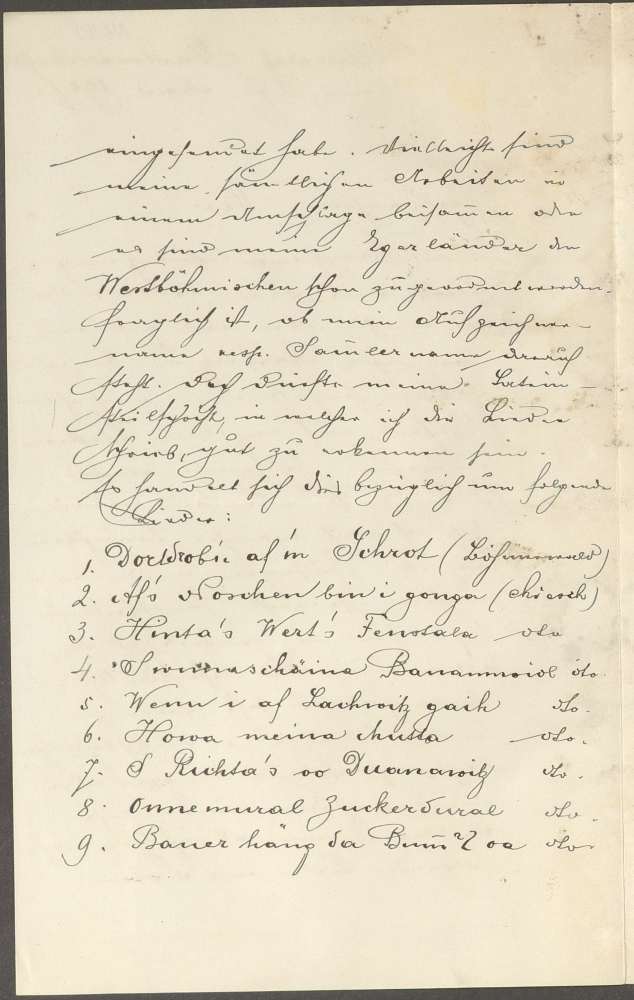 eingesendet habe. Vielleicht sind
meine sämtlichen Arbeiten in
einem Umschlage beisammen oder
es sind meine Egerländer den
Westböhmischen schon zugeordnet worden.
fraglich ist, ob mein Aufzeichner-
name resp. Sammlername darauf
steht. Doch dürfte meine Latein-
steilschrift, in welcher ich die Lieder
schrieb, gut zu erkennen sein.
Es handelt sich diesbezüglich um folgende
Lieder:
1. af'm Schrot (Böhmerwald)
2. Af's bin i gonga (Chiesch)
3. Hinta's Wert's Fenstala dto
4. 'S dto.
5. Wenn i af Lachwitz gaih dto.
6. Howa meina dto.
7. S Richta's oo Duanawitz dto.
8. Zuckerdural dto.
9. Bauer häng da oa dto.